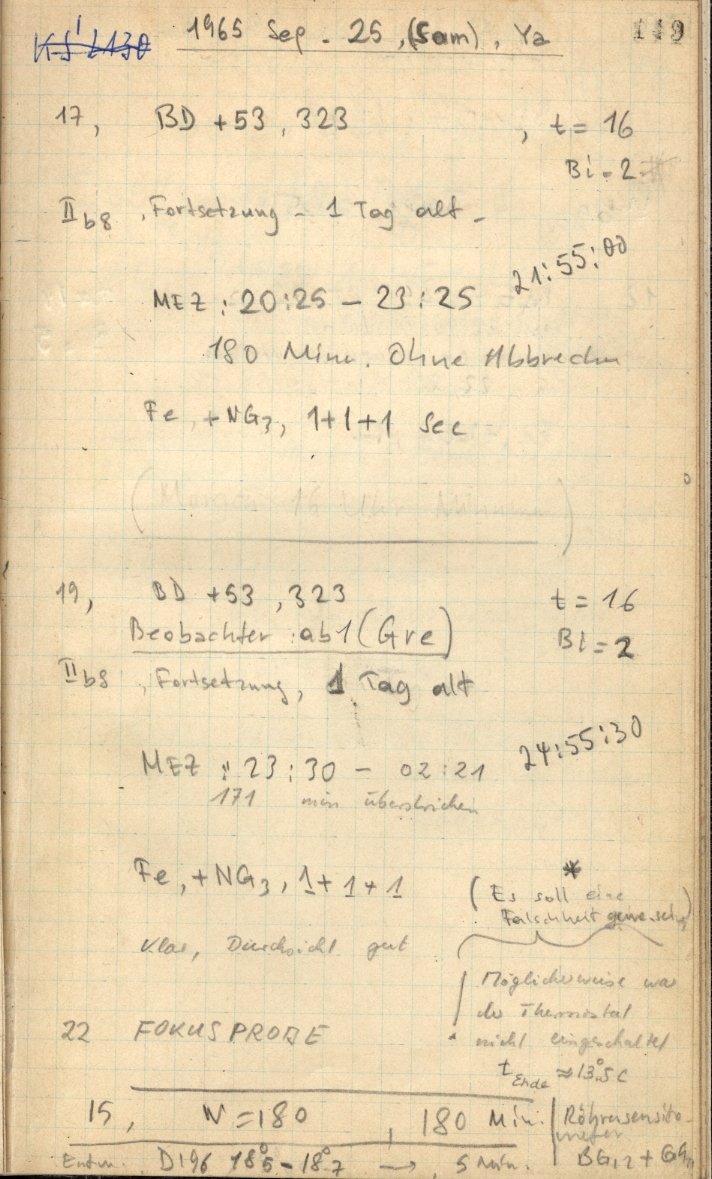 1965 Sep. 25, (Sam), Ya 149
17, BD +53, 323 , t = 16
Bl = 2
II b8, Fortsetzung - 1 Tag alt -
21:55:00
MEZ : 20:25 – 23:25
180 Min. Ohne Abbrechen
Fe, +NG3, 1+1+1 Sec
19, BD +53, 323 t = 16
Beobachter : ab 1 (Gre) Bl = 2
II b8, Fortsetzung, 1 Tag alt
24:55:30
MEZ : 23:30 – 02:21
171 min überstrichen
Fe, +NG3, 1+1+1
*
(Es soll eine
Falschheit gewesen)
Klar, Durchsicht gut
Möglicherweise war
der Thermostat
nicht eingeschaltet
t Ende ≈ 13°.5 C
22 FOKUSPROBE
15, N = 180 , 180 Min.
Röhrensensito-
meter
Entw. D196 18°.5 – 18°.7 → 5 Min.
BG12 +